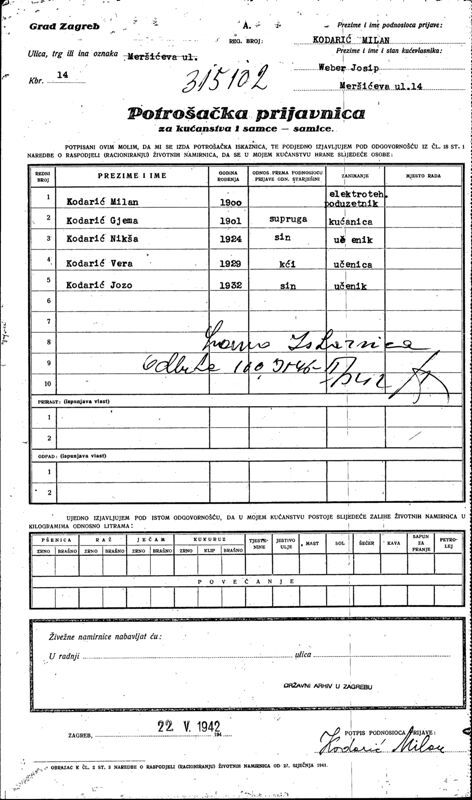 Grad Zagreb
A.
REG. BROJ:
Prezime i ime podnosioca prijave:
KODARIĆ MILAN
Ulica, trg ili ina oznaka Meršićeva ul.
Prezime i ime i stan kućevlasnika:
Weber Josip
Kbr. 14
315102
Meršićeva ul.14
Potrošačka prijavnica
za kućanstva i samce — samice.
POTPISANI OVIM MOLIM, DA MI SE IZDA POTROŠAČKA ISKAZNICA, TE PODJEDNO IZJAVLJUJEM POD ODGOVORNOŠĆU IZ ČL. 18 ST. 1
NAREDBE O RASPODJELI (RACIONIRANJU) ŽIVOTNIH NAMIRNICA, DA SE U MOJEM KUĆANSTVU HRANE SLIJEDEĆE OSOBE:
REDNI BROJ PREZIME I IME GODINA ROĐENJA ODNOS PREMA PODNOSIOCU PRIJAVE ODN. STARJEŠINI ZANIMANJE MJESTO RADA
1 Kodarić Milan 1900 elektroteh. poduzetnik
2 Kodarić Gjema 1901 supruga kućanica
3 Kodarić Nikša 1924 sin uč enik
4 Kodarić Vera 1929 kći učenica
5 Kodarić Jozo 1932 sin učenik
6
7
8
9
10
PRIRAST: (ispunjava vlast)
1
2
OTPAD: (ispunjava vlast)
1
2
UJEDNO IZJAVLJUJEM POD ISTOM ODGOVORNOŠĆU, DA U MOJEM KUĆANSTVU POSTOJE SLIJEDEĆE ZALIHE ŽIVOTNIH NAMIRNICA U
KILOGRAMIMA ODNOSNO LITRAMA:
PŠENICA RAŽ JEČAM KUKURUZ TJESTENINE JESTIVO ULJE MAST SOL ŠEĆER KAVA SAPUN ZA PRANJE PETROLEJ
ZRNO BRAŠNO ZRNO BRAŠNO ZRNO BRAŠNO ZRNO KLIP BRAŠNO
POVEĆANJE
Živežne namirnice nabavljat ću:
U radnji ulica
DRŽAVNI ARHIV U ZAGREBU
22 V. 1942
ZAGREB, 194
POTPIS PODNOSIOCA PRIJAVE:
Kodarić Milan
OBRAZAC K ČL. 2 ST. 3 NAREDBE O RASPODJELI (RACIONIRANJU) ŽIVOTNIH NAMIRNICA OD 27. SIJEČNJA 1941.